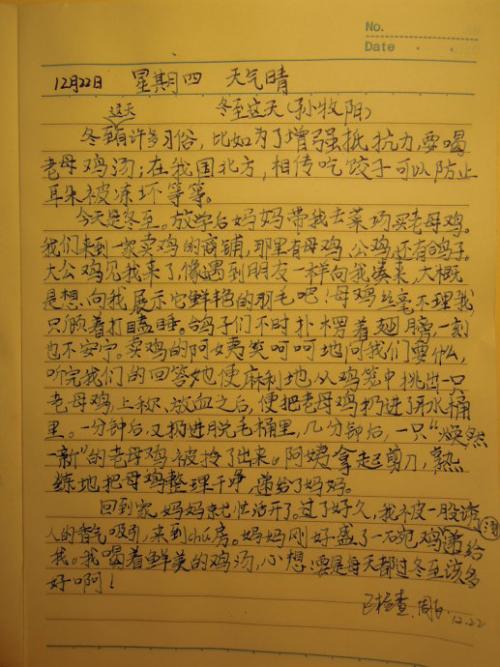 No.
Date
12月22日 星期四 天气晴
冬至这天(孙牧阳)
这天
冬至有许多习俗,比如为了增强抵抗力,要喝
老母鸡汤;在我国北方,相传吃饺子可以防止
耳朵被冻坏等等。
今天是冬至。放学后妈妈带我去菜场买老母鸡。
我们来到一家卖鸡的商铺,那里有母鸡、公鸡,还有鸽子。
大公鸡见我来了,像遇到朋友一样向我凑来,大概
是想向我展示它鲜艳的羽毛吧!母鸡丝毫不理我
只顾着打瞌睡。鸽子们不时扑楞着翅膀,一刻
也不安宁。卖鸡的阿姨笑呵呵地问我们要什么,
听完我们的回答她便麻利地从鸡笼中挑出一只
老母鸡,上称、放血之后,便把老母鸡扔进了开水桶
里。一分钟后,又扔进脱毛桶里,几分钟后,一只“焕然
一新”的老母鸡被拎了出来。阿姨拿起剪刀,熟
练地把母鸡整理干净,递给了妈妈。
回到家,妈妈就忙活开了。过了好久,我被一股诱
人的香气吸引,来到小厨房。妈妈刚好盛了一碗鸡汤递给
我。我喝着鲜美的鸡汤,心想:要是每天都过冬至该多
好啊!
已检查.周
12.22